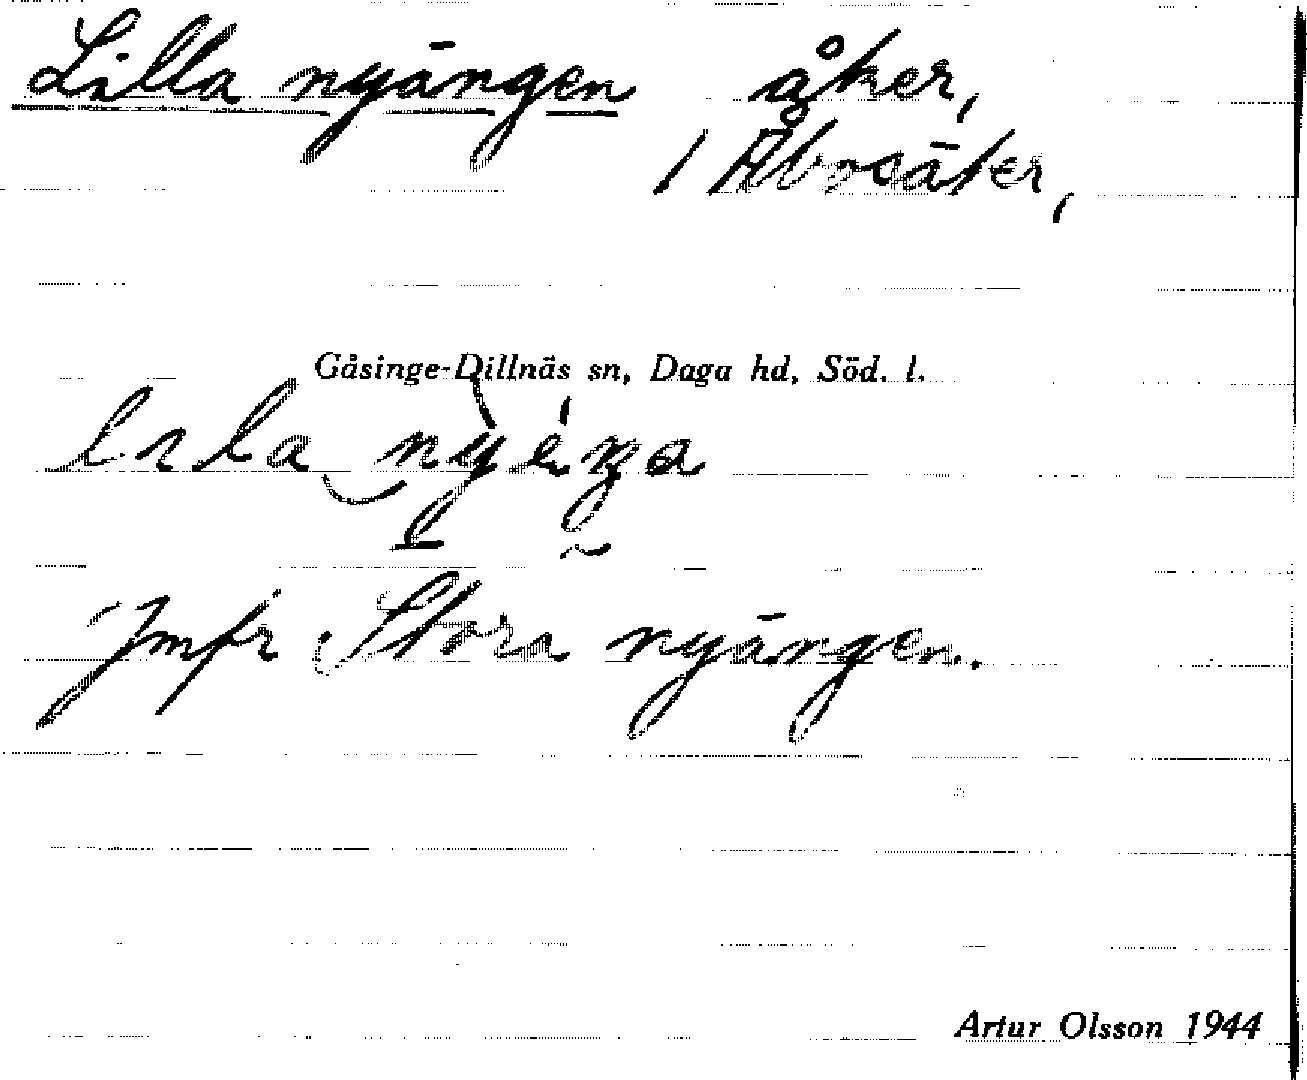 Lilla nyängen åker,
/ Åbosäter,
Gåsinge-Dillnäs sn, Daga hd, Söd. l.
lila
Jmfr Stora nyängen.
Artur Olsson 1944